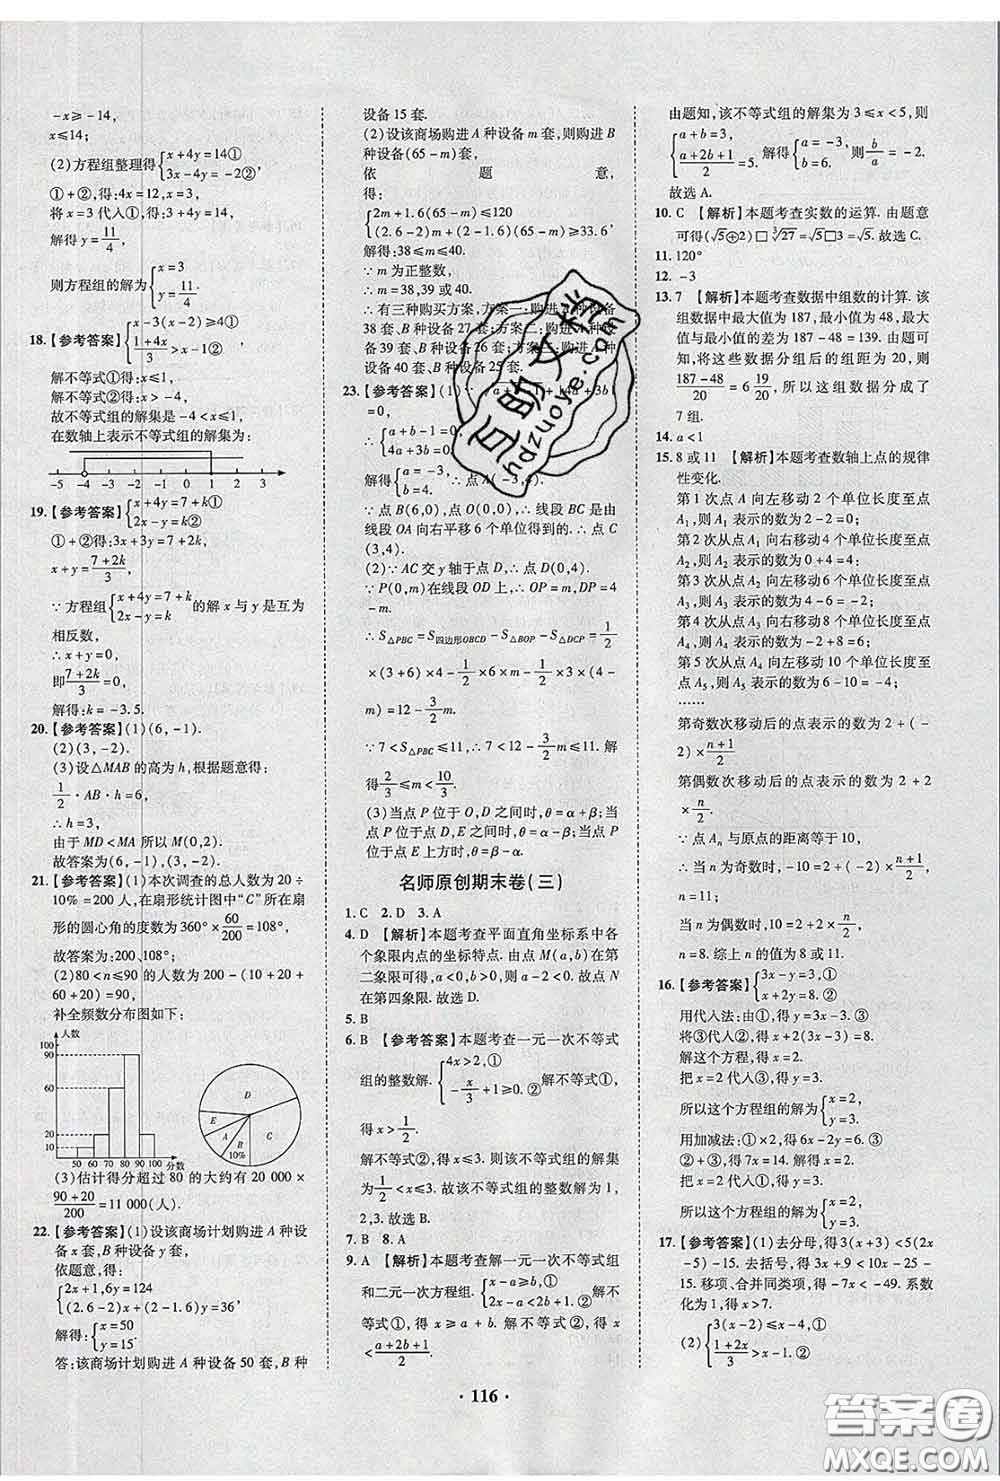 -x≥-14,
x≤14;
(2)方程组整理得{x+4y=14① 3x-4y=-2②}
①+②,得:4x=12,x=3,
将x=3代入①,得:3+4y=14,
解得y=11/4,
则方程组的解为{x=3 y=11/4}
18.【参考答案】{x-3(x-2)≥4① (1+4x)/3>x-1②},
解不等式①得:x≤1,
解不等式②得:x>-4,
故不等式组的解集是-4<x≤1,
在数轴上表示不等式组的解集为:
-5 -4 -3 -2 -1 0 1 2 3
19.【参考答案】{x+4y=7+k① 2x-y=k②}
①+②得:3x+3y=7+2k,
x+y=(7+2k)/3,
∵方程组{x+4y=7+k 2x-y=k}的解x与y是互为
相反数,
∴x+y=0,
即(7+2k)/3=0,
解得:k=-3.5.
20.【参考答案】(1)(6,-1).
(2)(3,-2).
(3)设△MAB的高为h,根据题意得:
1/2·AB·h=6,
∴h=3,
由于MD<MA 所以M(0,2).
故答案为(6,-1),(3,-2).
21.【参考答案】(1)本次调查的总人数为20÷
10%=200人,在扇形统计图中“C”所在扇
形的圆心角的度数为360°×60/200=108°,
故答案为:200,108°.
(2)80<n≤90的人数为200-(10+
20+60+20)=90,
补全频数分布图如下:
人数
100
90
60
20
10
50 60 70 80 90 100 分数
D
E
A
B
10%
C
(3)估计得分超过80的大约有20 000×
(90+20)/200=11 000(人).
22.【参考答案】(1)设该商场计划购进A种设
备x套,B种设备y套,
依题意,得:
{2x+1.6y=124 (2.6-2)x+(2-1.6)y=36}
解得:{x=50 y=15}
答:该商场计划购进A种设备50套,B种
设备15套.
(2)设该商场购进A种设备m套,则购进B
种设备(65-m)套,
依题意,
得:
{2m+1.6(65-m)≤120 (2.6-2)m+(2-1.6)(65-m)≥33.6}
解得:38≤m≤40.
∵m为正整数,
∴m=38,39或40.
∴有三种购买方案,方案一:购进A种设备
38套,B种设备27套;方案二:购进A种设
备39套,B种设备26套;方案三:购进A种
设备40套、B种设备25套.
23.【参考答案】(1)
=0,
∴{a+b-1=0 4a+3b=0}
解得{a=-3 b=4}
∵点B(6,0),点O(0,0),线段BC是由
线段OA向右平移6个单位得到的.∴点C
(3,4).
(2)∵AC交y轴于点D,∴点D(0,4).
∵P(0,m)在线段OD上,∴OP=m,DP=4
-m.
∴S△PBC=S四边形OBCD-S△BOP-S△DCP=1/2
×(3+6)×4-1/2×6×m-1/2×3×(4-
m)=12-3/2m.
∵7<S△PBC≤11,∴7<12-3/2m≤11.解
得2/3≤m<10/3.
(3)当点P位于O,D之间时,θ=α+β;当点
P位于点D,E之间时,θ=α+β;当点P位于
点E上方时,θ=β-α.
名师原创期末卷(三)
1.C 2.D 3.A
4.D 【解析】本题考查平面直角坐标系中各
个象限内点的坐标特点.由点M(a,b)在第
二象限可得,a<0,b>0,则a-2<0.故点N
在第四象限.故选D.
5.B
6.B 【参考答案】本题考查一元一次不等式
组的整数解.{4x>2,① -x/3+1≥0.②}解不等式①,
得x>1/2.
解不等式②,得x≤3.则该不等式组的解集
为1/2<x≤3.故该不等式组的整数解为1,
2,3.故选B.
7.B 8.A
9.A 【解析】本题考查解一元一次不等式组
和二元一次方程组.{x-a≥b,① 2x-a<2b+1.②}解不
等式①,得x≥a+b.解不等式②,得x
<(a+2b+1)/2.
由题知,该不等式组的解集为3≤x<5,则
{a+b=3, (a+2b+1)/2=5.}解得{a=-3, b=6.}则b/a=-2.
故选A.
10.C 【解析】本题考查实数的运算.由题意
可得(√5⊕2)□∛27=√5□3=√5.故选C.
11.120°
12.-3
13.7 【解析】本题考查数据中组数的计算.该
组数据中最大值为187,最小值为48,最大
值与最小值的差为187-48=139.因为要
将这些数据分组后的组距为20,而
(187-48)/20=6 19/20,所以这组数据分成了
7组.
14.a<1
15.8或11 【解析】本题考查数轴上点的规律
性变化.
第1次点A向左移动2个单位长度至点
A₁,则A₁表示的数为2-2=0;
第2次从点A₁向右移动4个单位长度至
点A₂,则A₂表示的数为0+4=4;
第3次从点A₂向左移动6个单位长度至
点A₃,则A₃表示的数为4-6=-2;
第4次从点A₃向右移动8个单位长度至
点A₄,则A₄表示的数为-2+8=6;
第5次从点A₄向左移动10个单位长度至
点A₅,则A₅表示的数为6-10=-4;
……
第奇数次移动后的点表示的数为2+(-
2)×(n+1)/2
第偶数次移动后的点表示的数为2+2
×n/2.
∵点Aₙ与原点的距离等于10,
∴当n为奇数时,2-2×(n+1)/2=-10,n=11.
当n为偶数时,2+2×n/2=10,
n=8.综上n的值为8或11.
16.【参考答案】{3x-y=3,① x+2y=8.②}
用代入法:由①,得y=3x-3.③
将③代入②,得x+2(3x-3)=8.
解这个方程,得x=2.
把x=2代入③,得y=3.
所以这个方程组的解为{x=2, y=3.}
用加减法:①×2,得6x-2y=6.③
②+③,得7x=14.所以x=2.
把x=2代入①,得y=3.
所以这个方程组的解为{x=2, y=3.}
17.【参考答案】(1)去分母,得3(x+3)<5(2x
-5)-15.去括号,得3x+9<10x-25-
15.移项、合并同类项,得-7x<-49.系数
化为1,得x>7.
(2){3(x-2)≤x-4,① (1+2x)/3>x-1.②}
·116·
互助文档
hdzuoye.com
答案圈
MXQE.COM